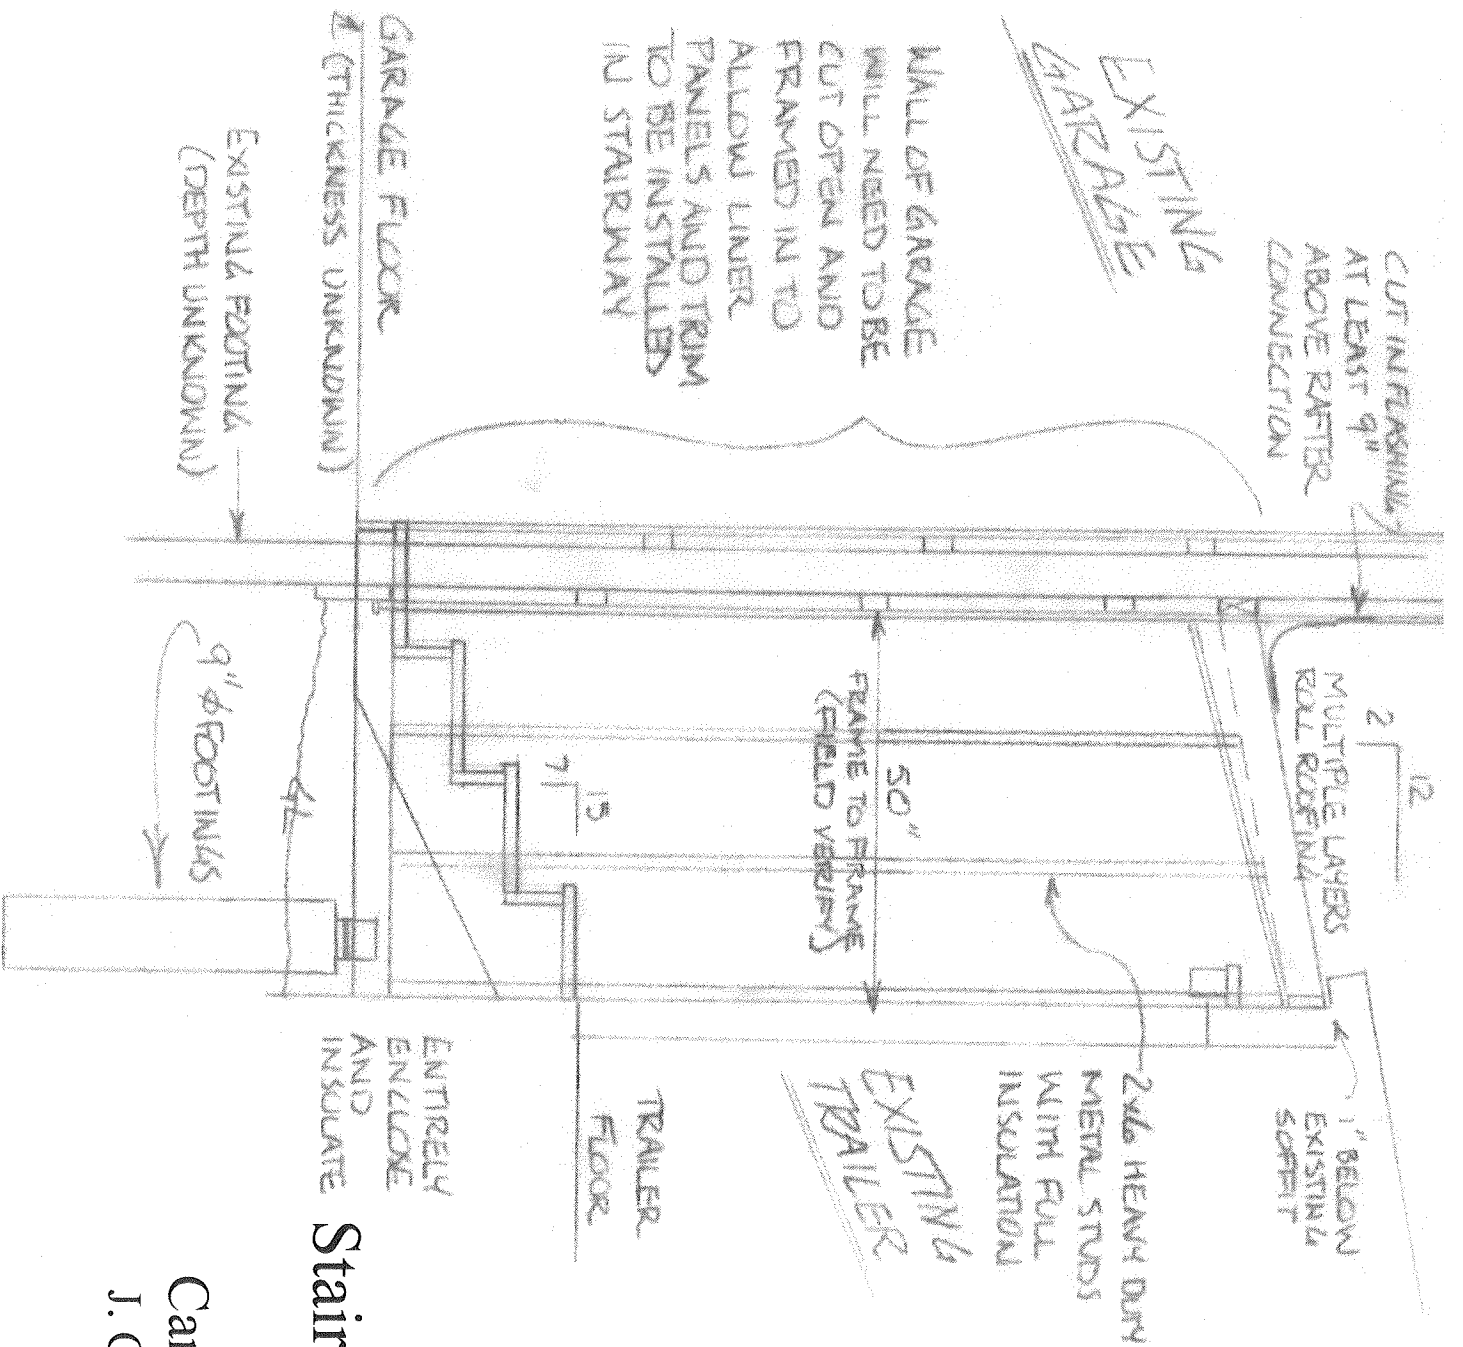 CUT IN FLASHING
AT LEAST 9"
ABOVE RAFTER
CONNECTION
EXISTING
GARAGE
WALL OF GARAGE
WILL NEED TO BE
CUT OPEN AND
FRAMED IN TO
ALLOW LINER
PANELS AND TRIM
TO BE INSTALLED
IN STAIRWAY
GARAGE FLOOR
(THICKNESS UNKNOWN)
EXISTING FOOTING
(DEPTH UNKNOWN)
12
2
MULTIPLE LAYERS
ROLL ROOFING
50"
FRAME TO FRAME
(FIELD VERIFY)
15
7
9" ϕ FOOTINGS
1" BELOW
EXISTING
SOFFIT
2x6 HEAVY DUTY
METAL STUDS
WITH FULL
INSULATION
EXISTING
TRAILER
TRAILER
FLOOR
ENTIRELY
ENCLOSE
AND
INSULATE
Stair
Car
J. C